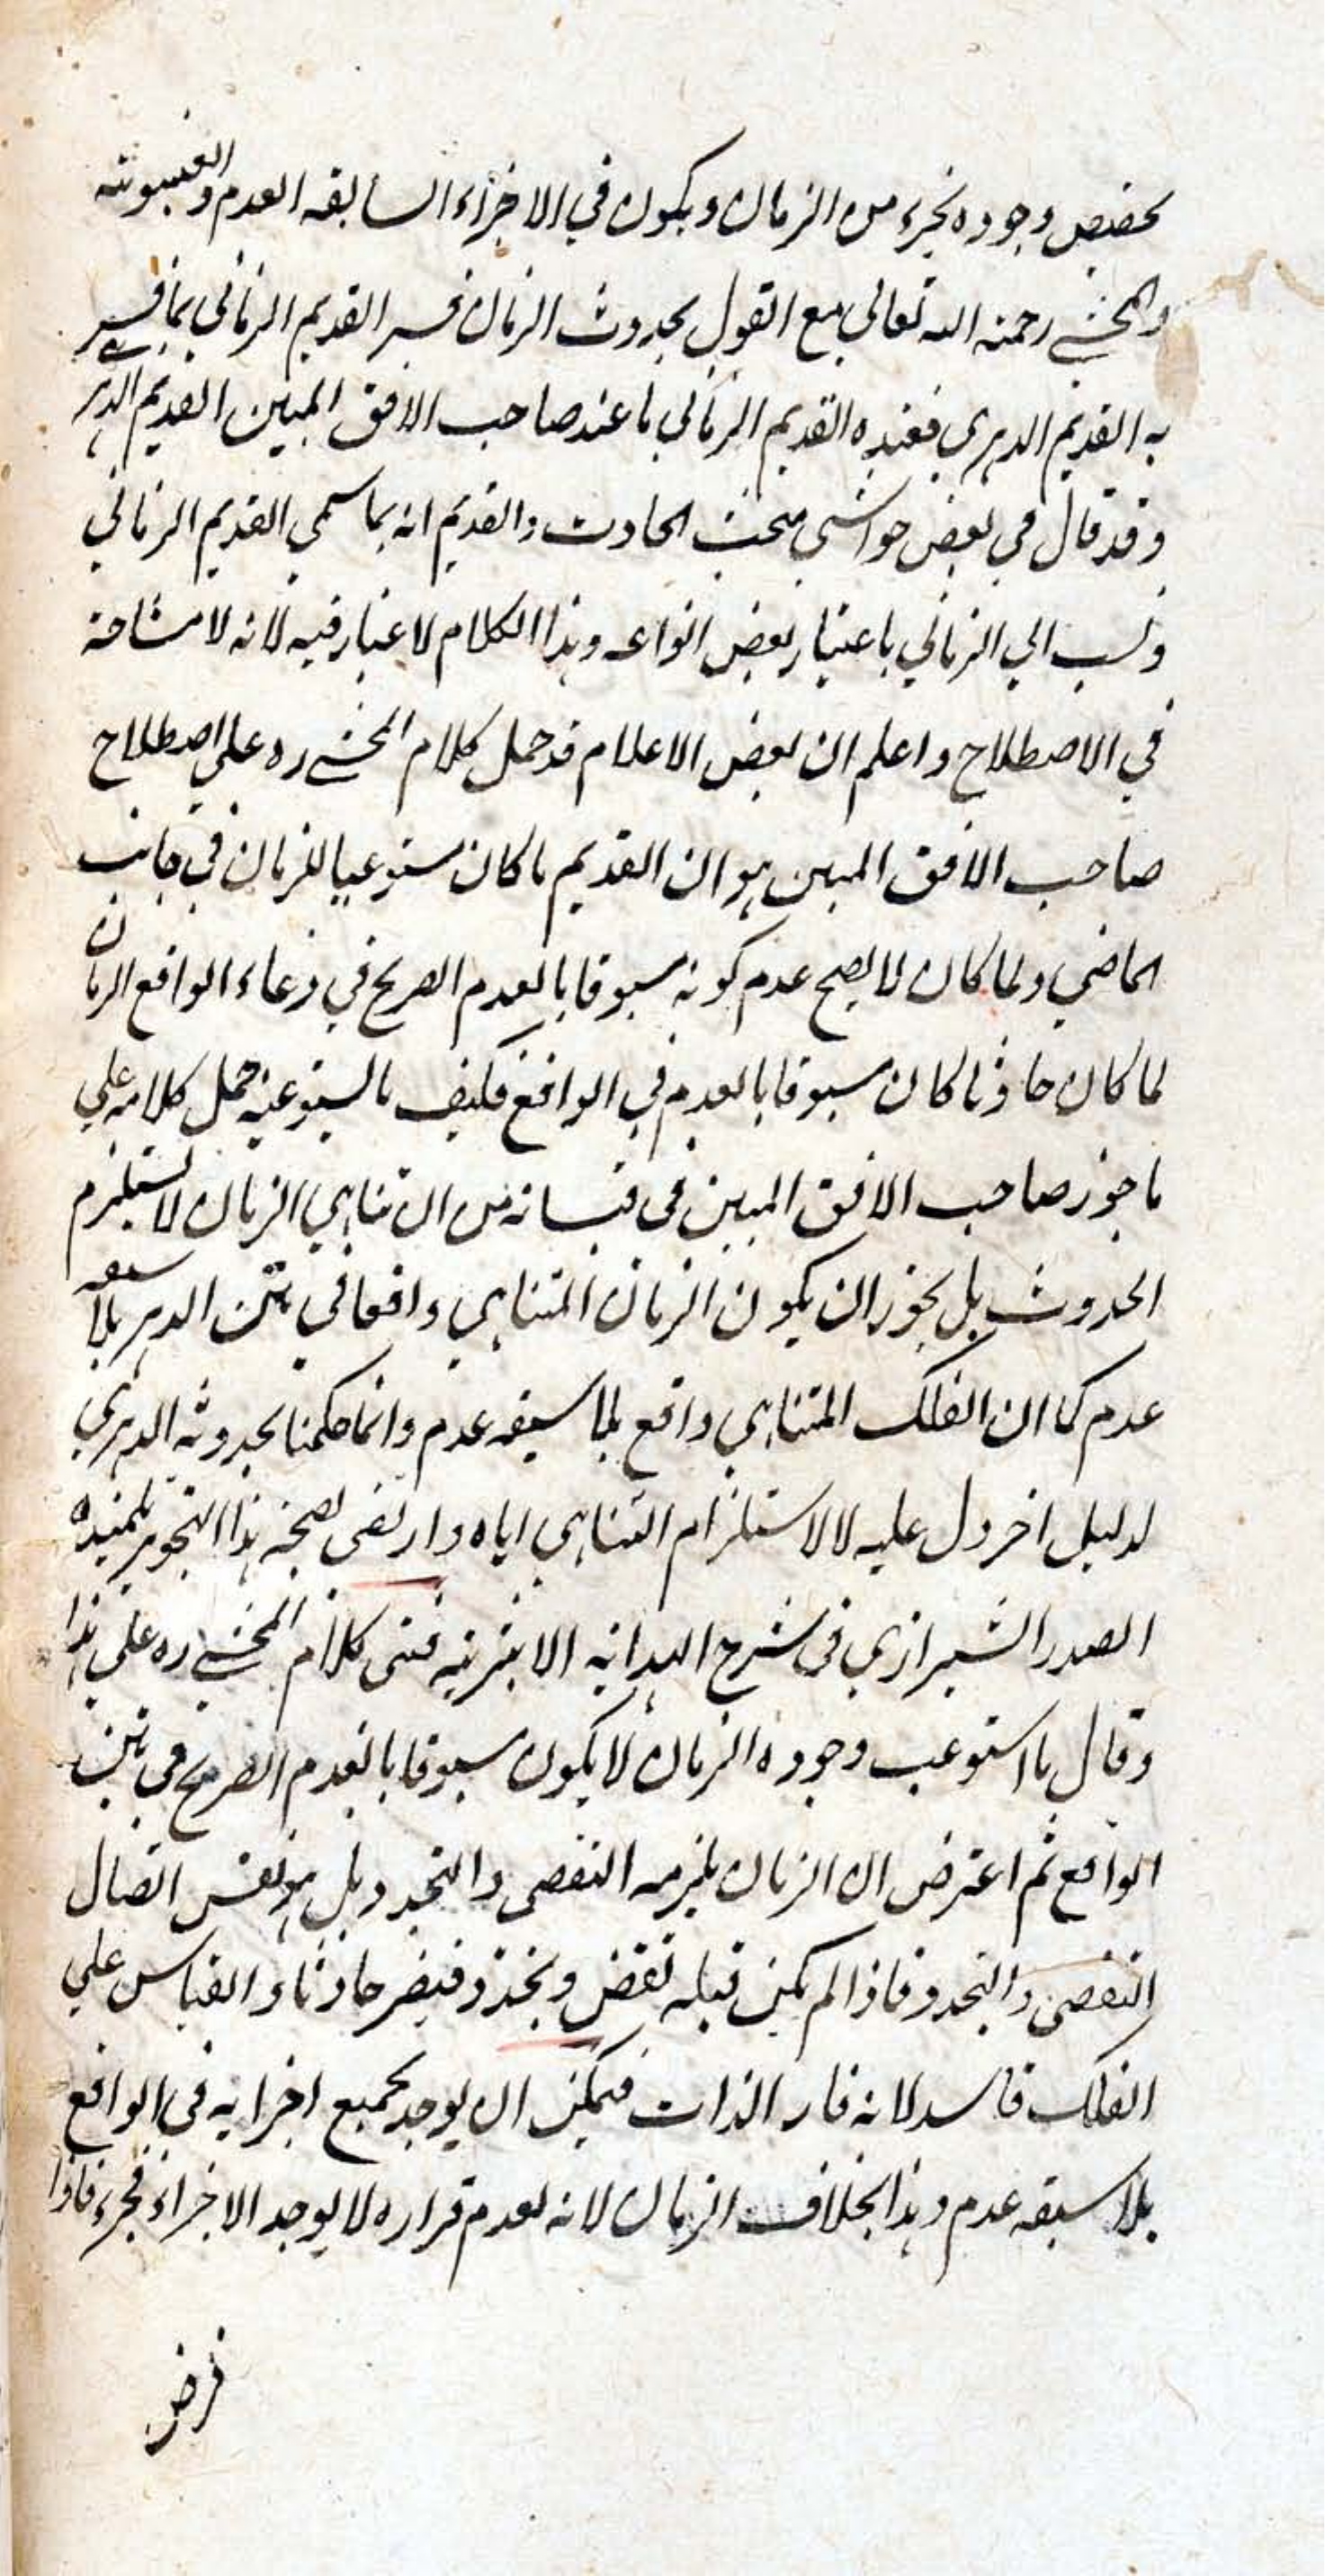 يختص وجوده بجزء من الزمان ويكون في الاجزاء السابقه العدم والغيبوبته
والمحشي رحمته الله تعالى مع القول بحدوث الزمان فسر القديم الزماني بما فسر
به القديم الدهري فعنده القديم الزماني ما عند صاحب الافق المبين القديم الدهري
وقد قال في بعض حواشي مبحث الحادث والقديم انه بما سمي القديم الزماني
ونسب الي الزماني باعتبار بعض انواعه وهذا الكلام لا غبار فيه لانه لا مشاحة
في الاصطلاح واعلم ان بعض الاعلام قد حمل كلام المحشي ره علي اصطلاح
صاحب الافق المبين هو ان القديم ما كان مستوعبا للزمان في جانب
الماضي ولما كان لا يصح عدم كونه مسبوقا بالعدم الصريح في وعاء الواقع الزمان
لما كان حادثا كان مسبوقا بالعدم في الواقع فكيف بالمستوعبه حمل كلامه علي
ما جوز صاحب الافق المبين في قبساته من ان تناهي الزمان لا يستلزم
الحدوث بل يجوز ان يكون الزمان المتناهي واقعا في متن الدهر بلا سبقه
عدم كما ان الفلك المتناهي واقع بلا سبقه عدم وانما حكمنا بحدوثه الدهري
لدليل اخر دل عليه لا لاستلزام التناهي اياه وارتضى بصحة هذا التجويز تلميذه
الصدر الشيرازي في شرح الهدايه الاثيريه فبنى كلام المحشي ره علي هذا
وقال ما استوعب وجوده الزمان لا يكون مسبوقا بالعدم الصريح في متن
الواقع ثم اعترض ان الزمان يلزمه التقضى والتجدد بل هو نفس اتصال
التقضى والتجدد فاذا لم يكن قبله تقض وتجدد فيصر حادثا والقياس علي
الفلك فاسد لانه قار الذات فيمكن ان يوجد بجميع اجزايه في الواقع
بلا سبقه عدم وهذا بخلاف الزمان لانه لعدم قراره لا يوجد الا جزاء فجزء فاذا
فرض